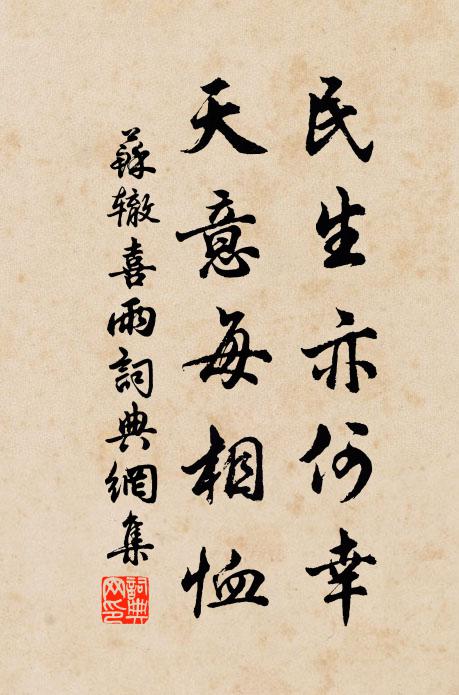 民生亦何幸
天意每相恤
蘇辙喜雨詞典網集
詞典网印